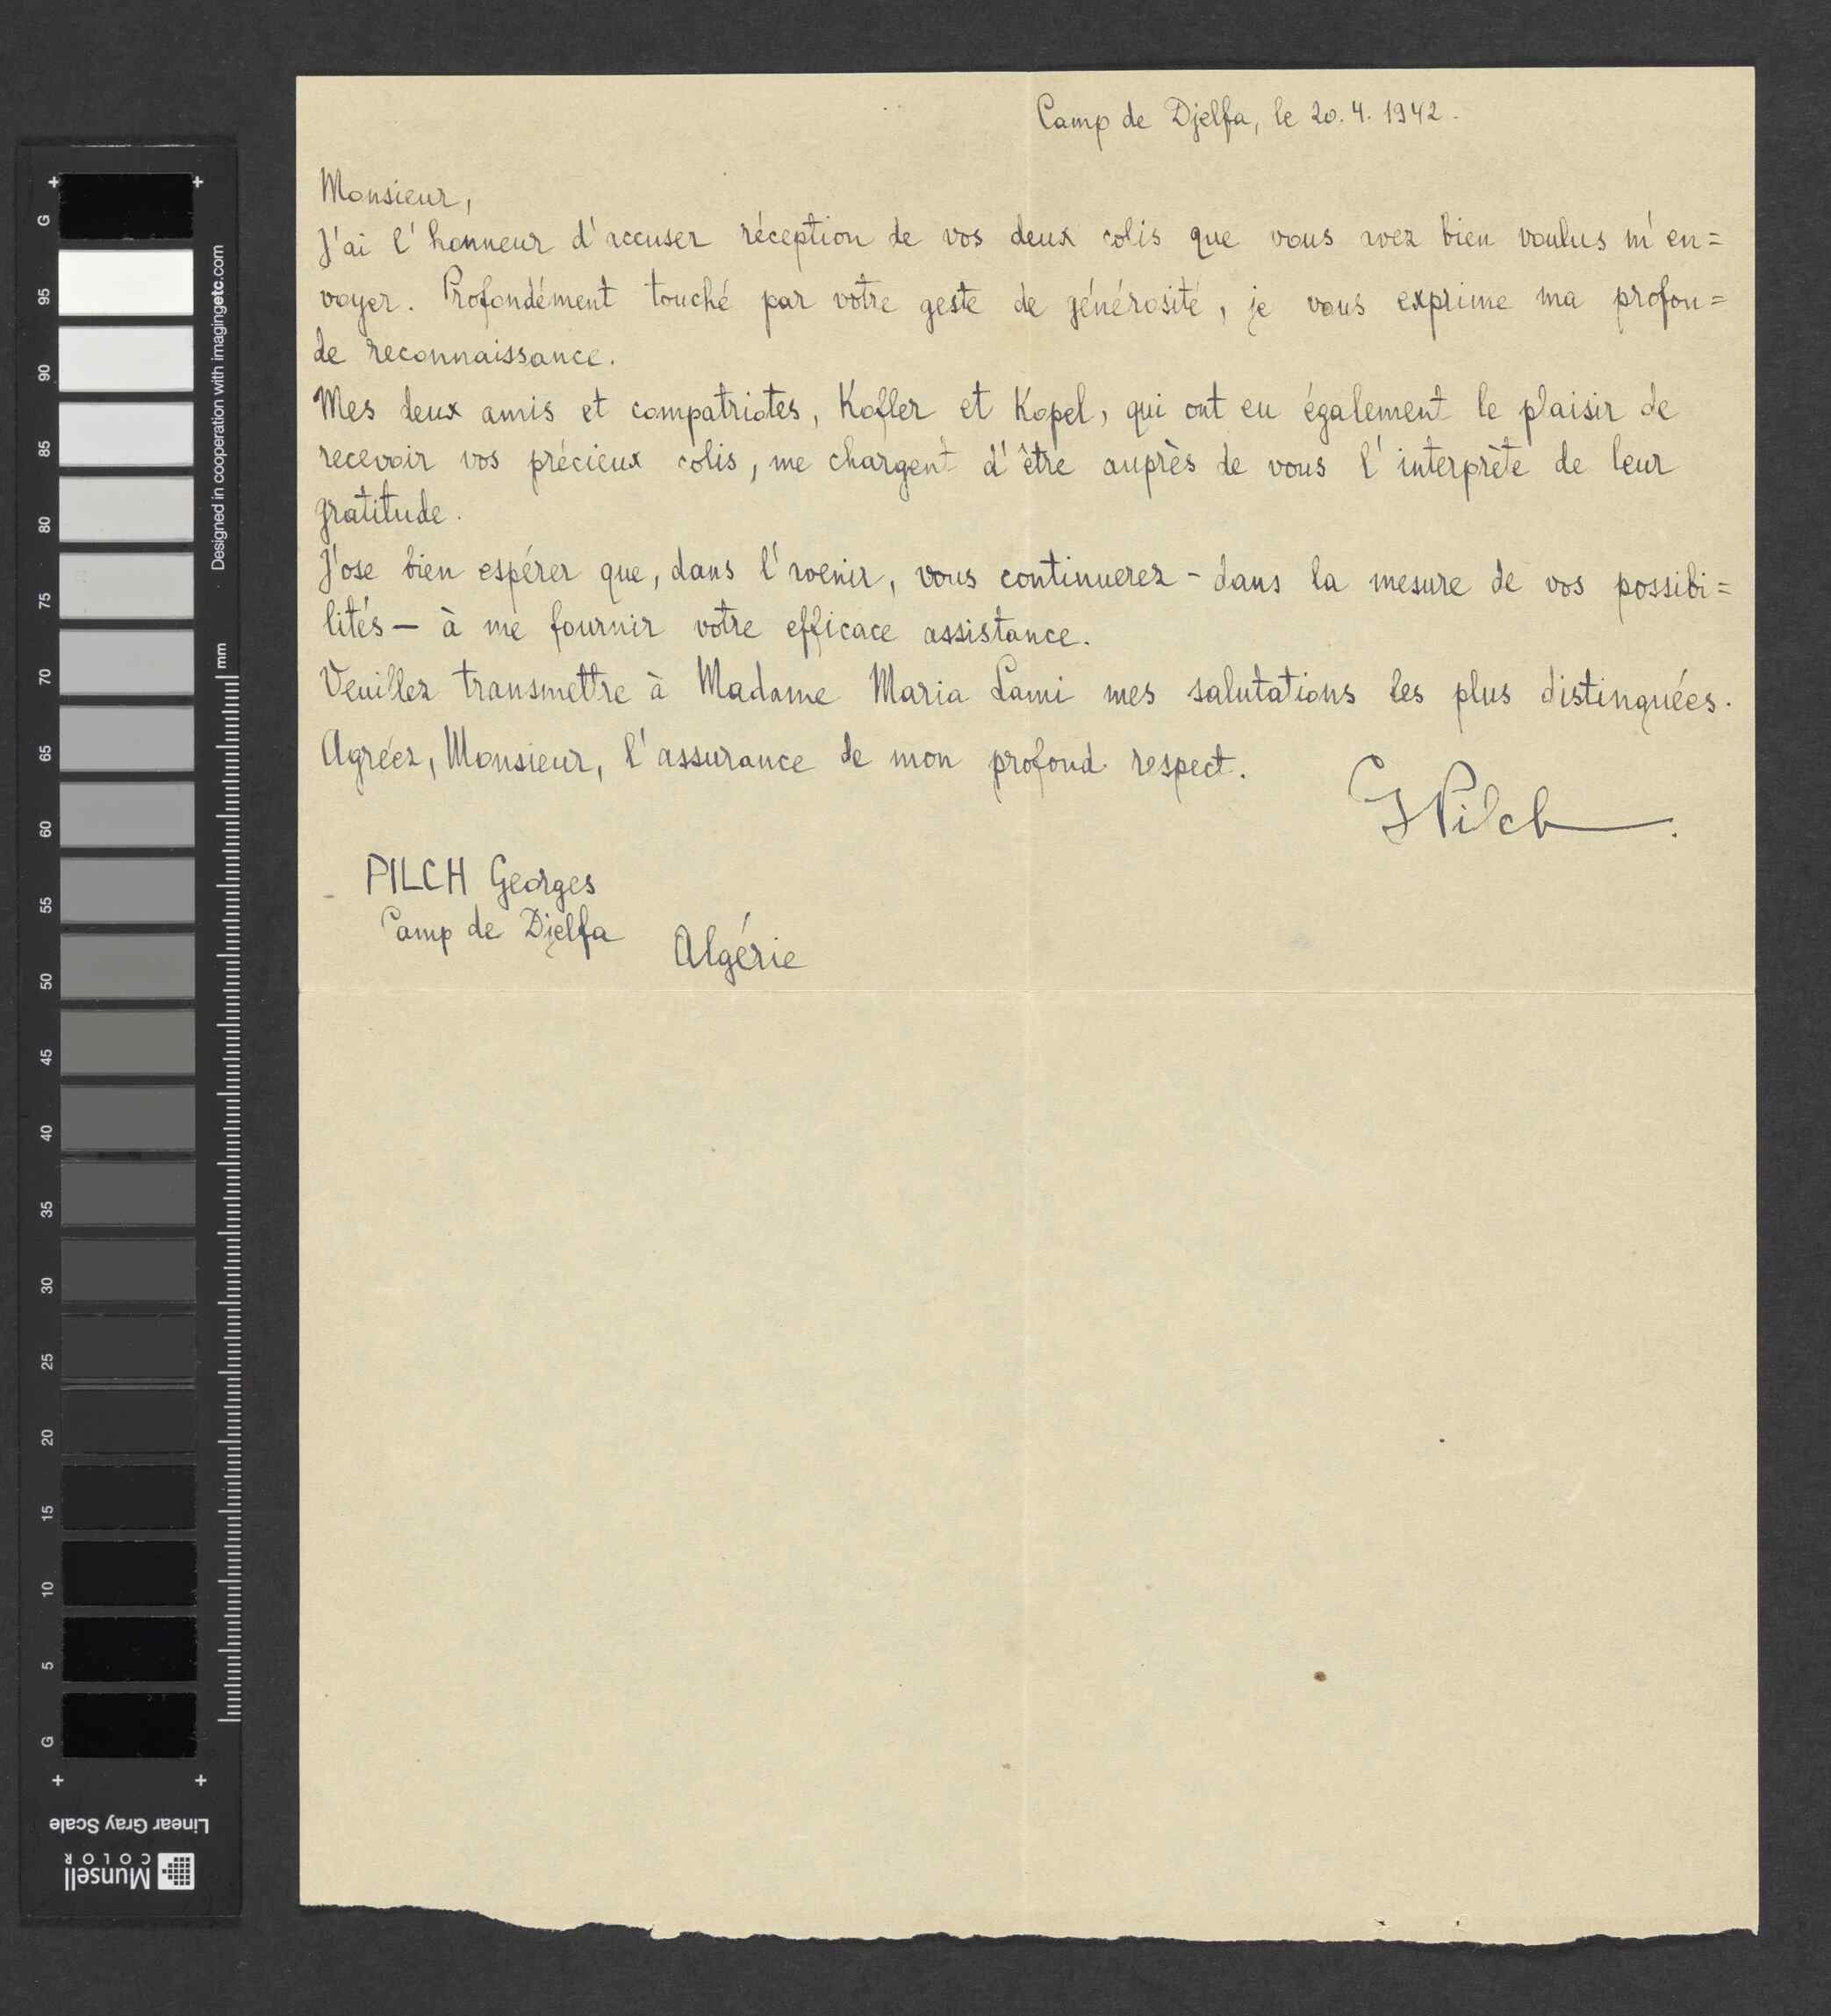 Camp de Djelfa, le 20.4.1942.
Monsieur,
J'ai l'honneur d'accuser réception de vos deux colis que vous avez bien voulus m'en=
voyer. Profondément touché par votre geste de générosité, je vous exprime ma profon=
de reconnaissance.
Mes deux amis et compatriotes, Kofler et Kopel, qui ont eu également le plaisir de
recevoir vos précieux colis, me chargent d'être auprès de vous l'interprète de leur
gratitude.
J'ose bien espérer que, dans l'avenir, vous continuerez - dans la mesure de vos possibi=
lités - à me fournir votre efficace assistance.
Veuillez transmettre à Madame Maria Lami mes salutations les plus distinguées.
Agréez, Monsieur, l'assurance de mon profond respect.
GPilch
PILCH Georges
Camp de Djelfa
Algérie
G
95
90
85
80
75
70
65
60
55
50
45
40
35
30
25
20
15
10
5
G
Designed in cooperation with imagingetc.com
mm
Linear Gray Scale
Munsell
COLOR